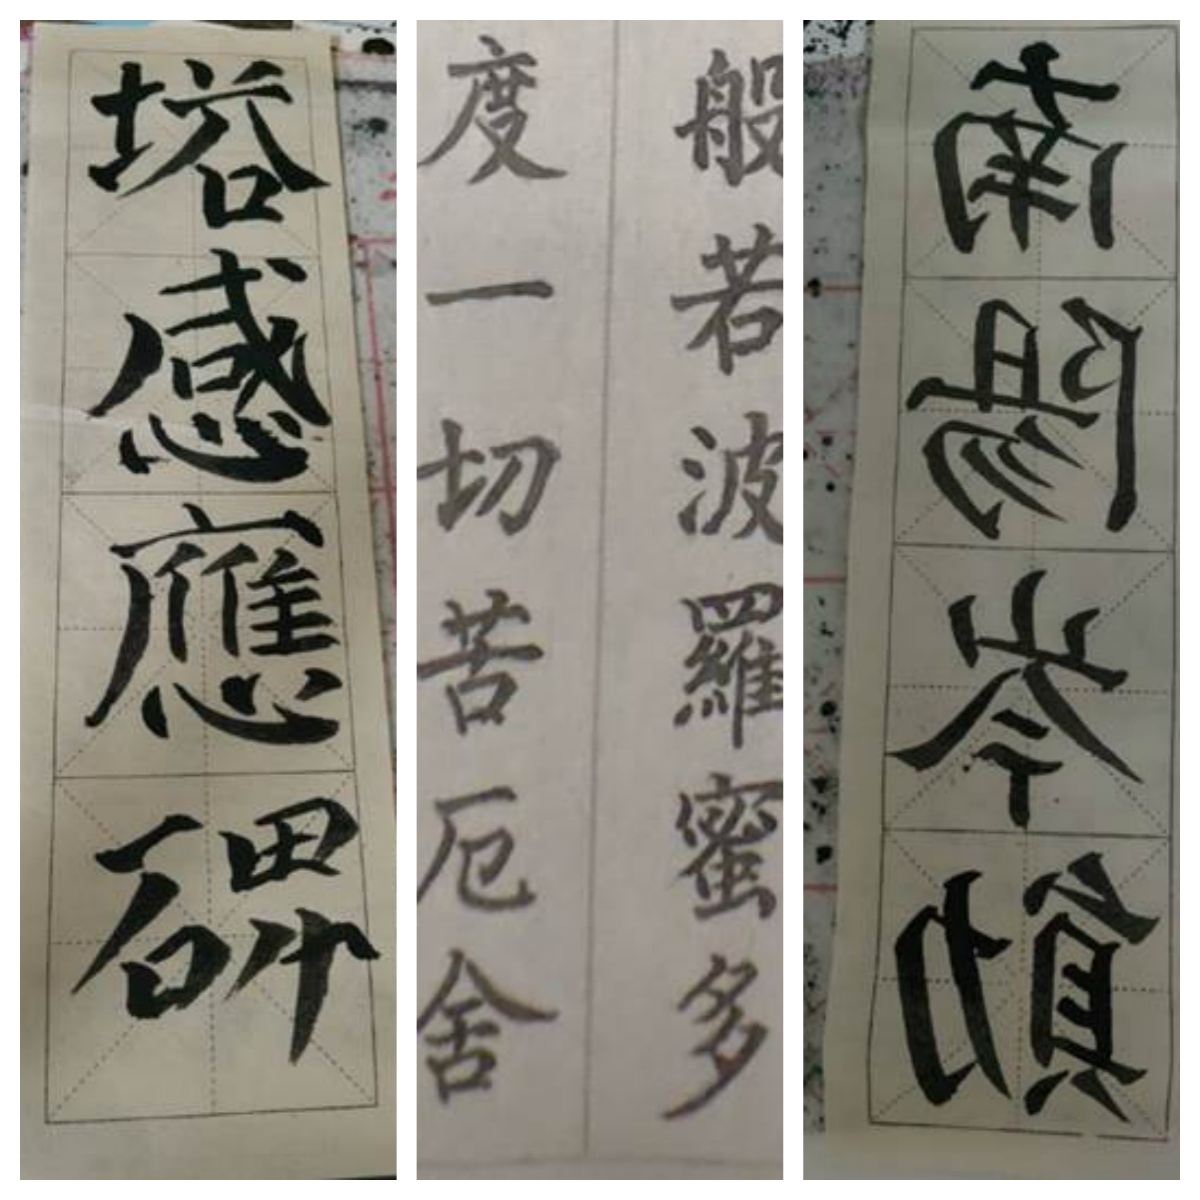 塔感應碑
般若波羅蜜多
度一切苦厄舍
南陽岑勛